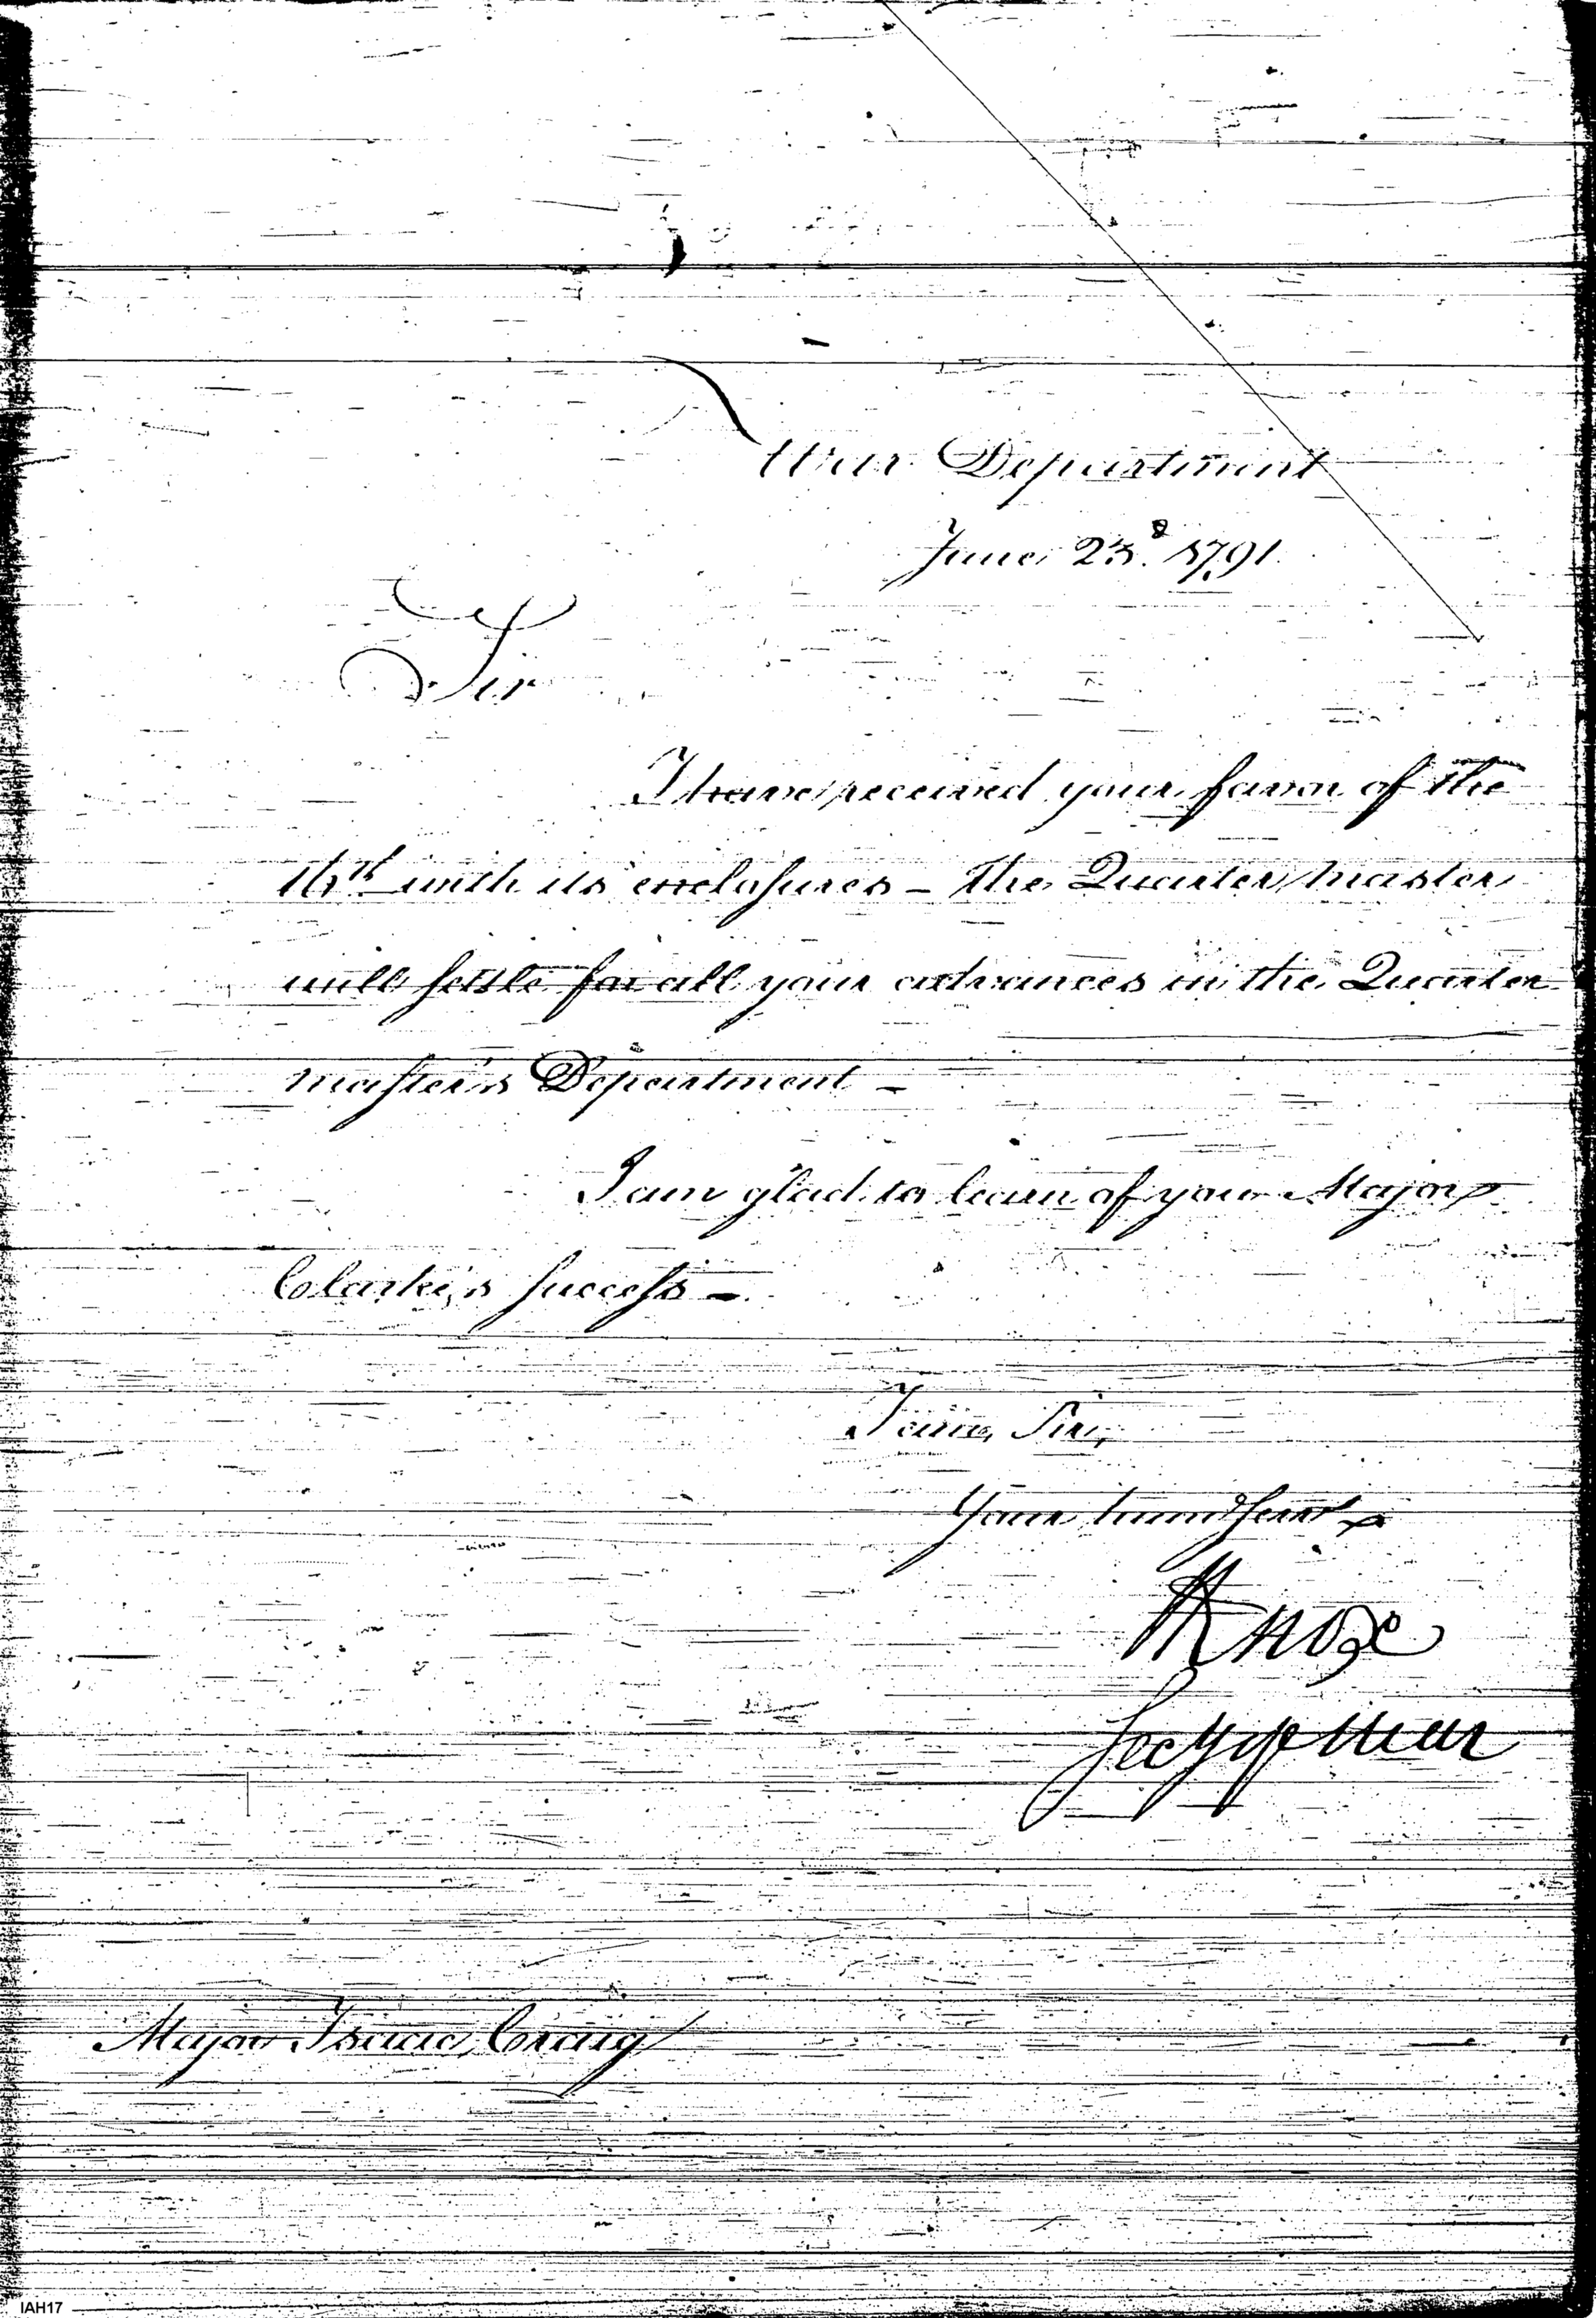 War Department
June 23d. 1791.
Sir
I have received your favor of the
16th with its enclosures – The Quarter master
will settle for all your advances in the Quarter
master's Department –
I am glad to learn of your Major
Clarke's success –
I am, Sir,
Your hum. servt
HKnox
Secy of War
Major Isaac Craig
IAH17